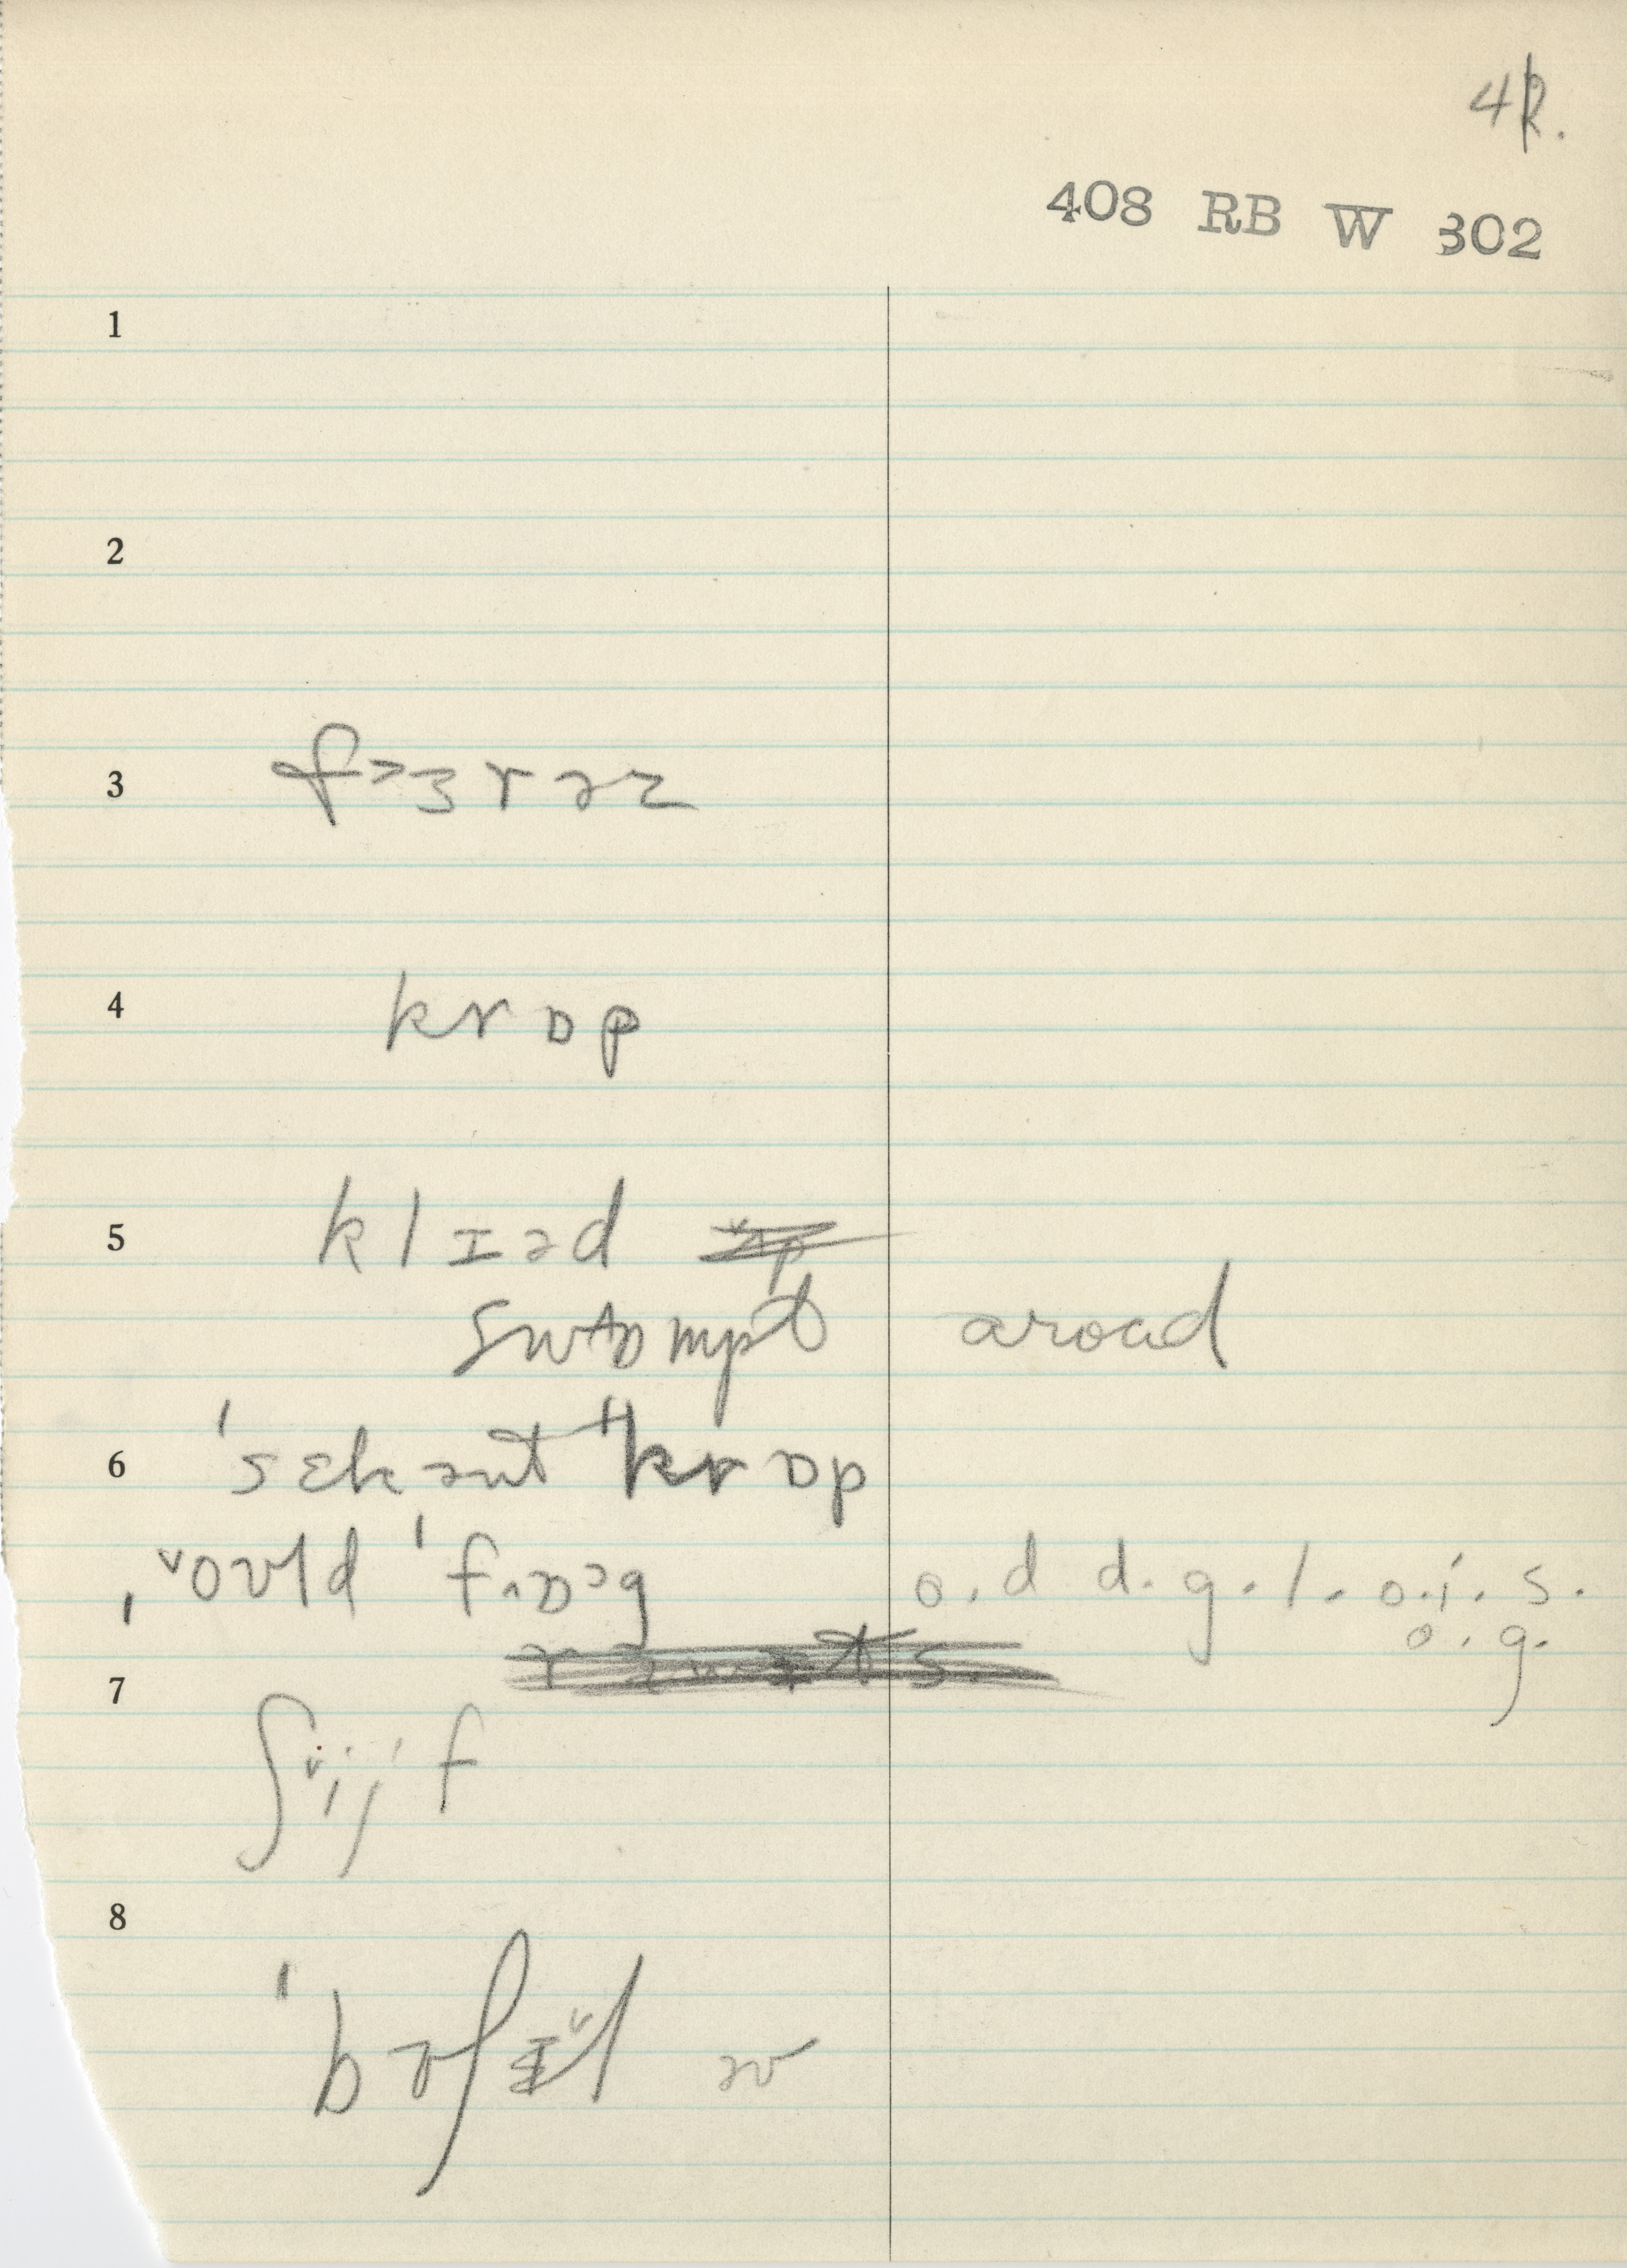 41.
408 RB W 302
1
2
3 f˃ɜrəz
4 krɒp
5 klɪəd
swɒmpt aroad
6 ˈsɛkənt ˈkrɒp
ˌ˅oʊld ˈfɒ˃g o.d d.g.l.o.i.s.
o.g.
7
ʃ˅ijf
8
ˈbʊʃɪ˅l əv